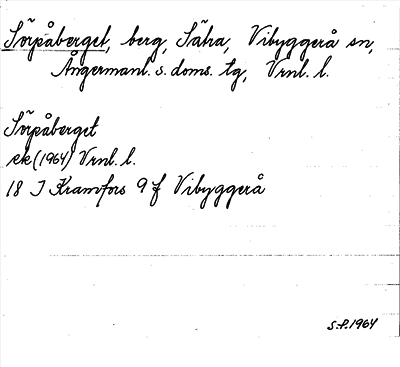 Sörpåberget, berg, Sätra, Vibyggerå sn,
Ångermanl. s. doms. tg, Vrnl. l.
Sörpåberget
ek (1964) Vrnl. l.
18 J Kramfors 9 f Vibyggerå
S.P. 1964